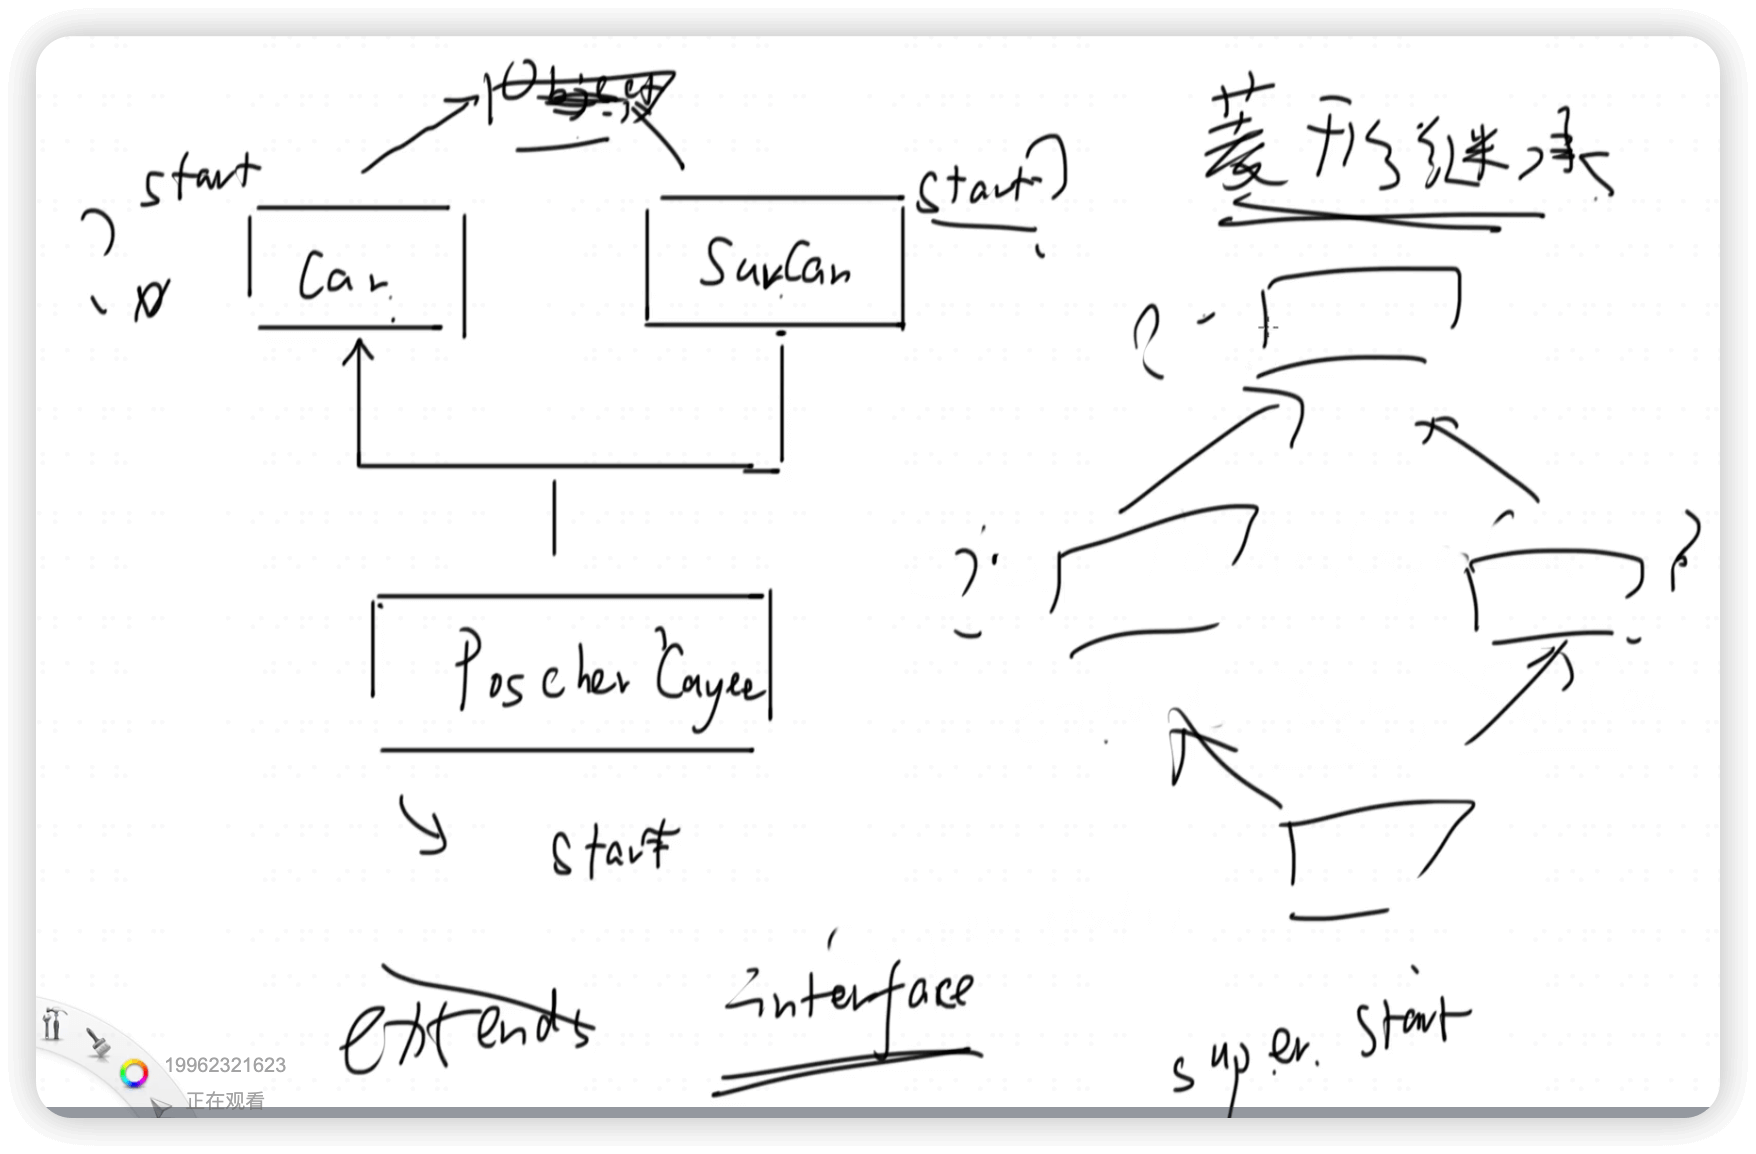 Object
菱形继承
start
start
Car
SuvCar
Poscher Cayee
start
extends
interface
super. start
19962321623
正在观看